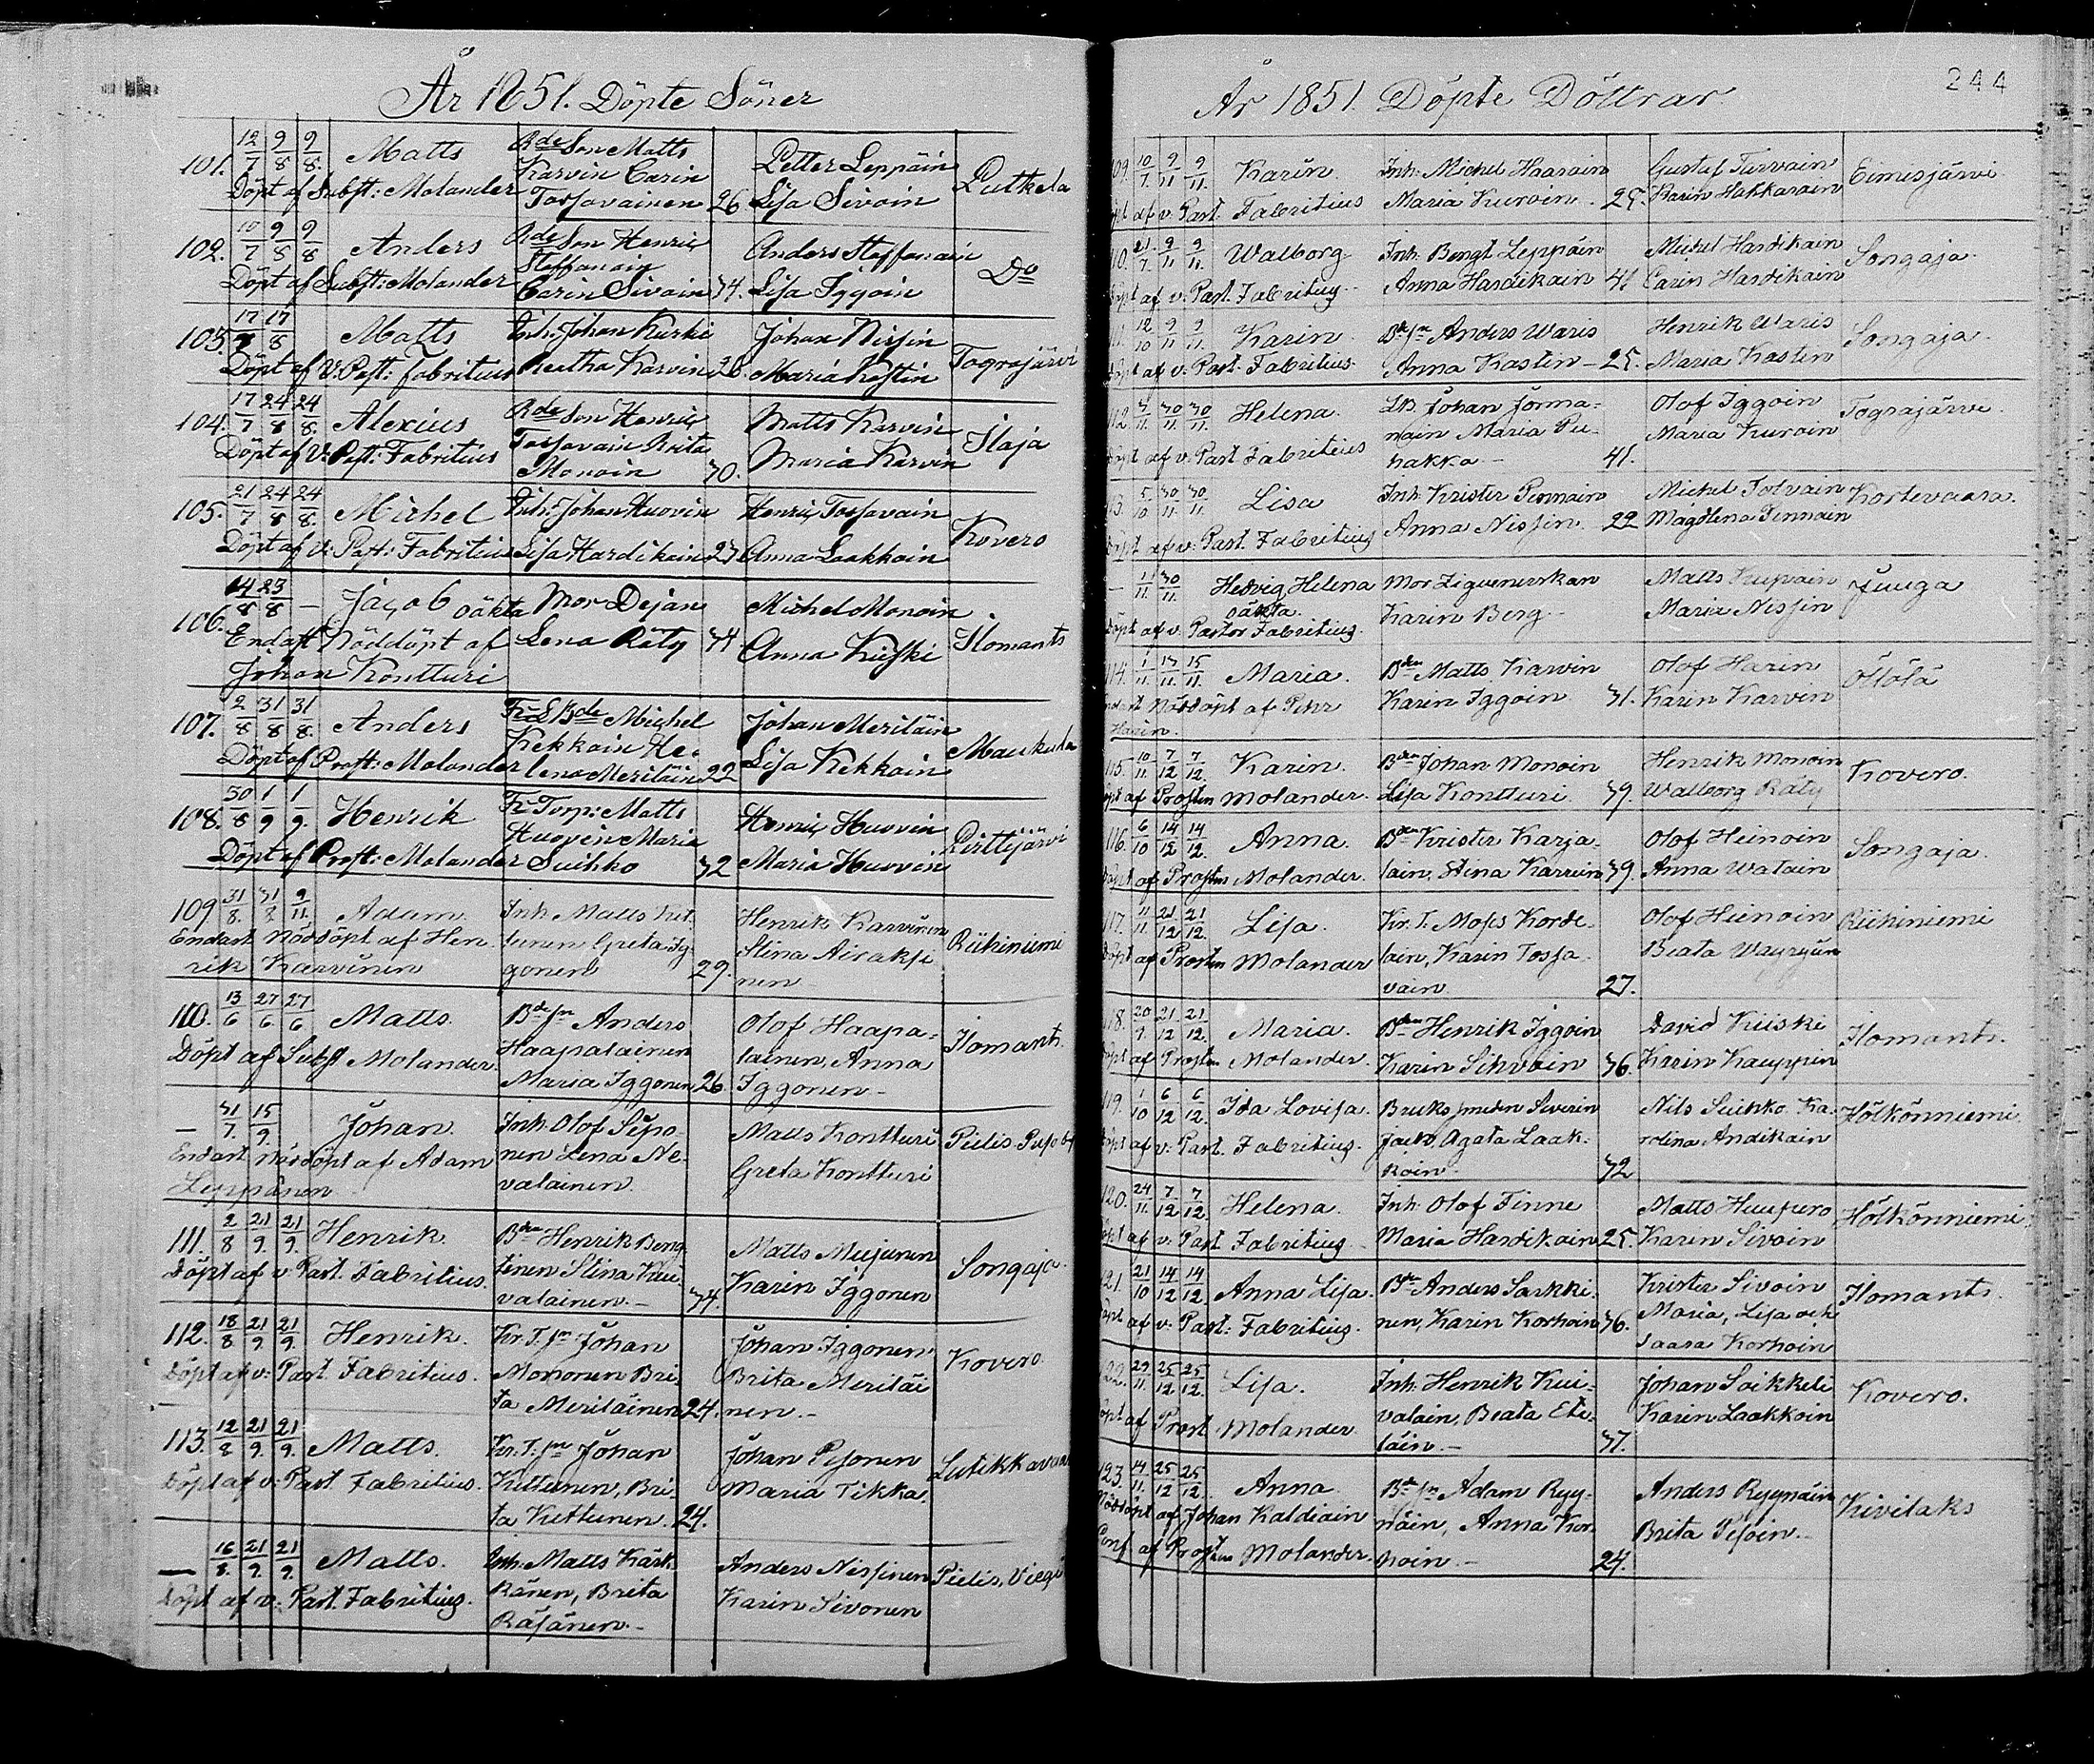 År 1851. Döpte Söner
101. 12/7 9/8 9/8. Matts Bde Son Matts Petter Leppäin Putkela
Karvin Carin
Döpt af Subst: Molander Tossavainen 26 Lisa Sivoin
102. 10/7 9/8 9/8 Anders Bde Son Henric Anders Steffanain Do
Steffanain
Döpt af Subst: Molander Carin Sivoin 34. Lisa Iggoin
103. 17/8 17/8 Matts Inh: Johan Kurki Johan Nissin Tograjärvi
Döpt af V: Past: Fabritius Reetha Karvin 28. Maria Kostin
104. 17/7 24/8 24/8. Alexius Bde Son Henric Matts Karvin Ilaja
Tossavain Brita
Döpt af V: Past: Fabritius Monoin 30. Maria Karvin
105. 21/7 24/8 24/8. Michel Inh: Johan Huovin Henric Tossavain Kovero
Döpt af V: Past: Fabritius Lisa Hardikain 27 Anna Laakkoin
106. 14/8 23/8 – Jacob oäkta Mor Dejan Michel Monoin Ilomants
Endast Nöddöpt af Lena Räty 34 Anna Kiiski
Johan Kontturi
107. 2/8 31/8 31/8. Anders Fr LBde Michel Johan Meriläin Maukula
Kekkoin He-
Döpt af Prost: Molander lena Meriläin 22 Lisa Kekkoin
108. 30/8 1/9 1/9. Henrik Fr Torp: Matts Henric Huovin Pirttijärvi
Huovin Maria
Döpt af Prost: Molander Suihko 32 Maria Huovin
109 31/8. 31/8 9/11. Adam. Inh. Matts Kit- Henrik Karvinen Riihiniemi
Endast Nöddöpt af Hen- tunen Greta Ig- Stina Airaksi
rik Karvinen gonen 29. nen
110. 13/6 27/6. 27/6 Matts. Bde sn Anders Olof Haapa- Ilomants.
Döpt af Subst Molander. Haapalainen lainen, Anna
Maria Iggonen 26. Iggonen –
— 31/7. 15/9. Johan. Inh. Olof Sipo- Matts Kontturi Pielis
Endast Nöddöpt af Adam nen Lena Ne- Greta Kontturi
Leppänen valainen.
111. 2/8 21/9. 21/9. Henrik. Bden Henrik Beng- Matts Miejunen Songaja.
Döpt af v: Past. Fabritius. tinen Stina Kui- Karin Iggonen
valainen. – 34.
112. 18/8 21/9. 21/9. Henrik. Kr. T. sn Johan Johan Iggonen Kovero.
Döpt af v: Past. Fabritius. Mononen Bri- Brita Meriläi
ta Meriläinen 24. nen. –
113. 12/8 21/9. 21/9. Matts. Kr. T. sn Johan Johan Pesonen
Döpt af v: Past. Fabritius. Kettunen, Bri- Maria Tikka.
ta Kettunen. 24.
— 16/8. 21/9. 21/9. Matts. Inh. Matts Kärk- Anders Nissinen Pielis,
Döpt af v: Past. Fabritius. känen, Brita Karin Sivonen
Räsänen. –
244
År 1851. Döpte Döttrar
109. 10/7. 9/11 9/11. Karin. Inh. Michel Haaroin Gustaf Turvain Eimisjärvi
Döpt af v. Past. Fabritius Maria Kuroin. 25. Karin Hakkarain
110. 21/7. 9/11. 9/11. Walborg. Inh. Bengt Leppäin Michel Hardikain Songaja.
Döpt af v: Past. Fabritius. Anna Hardikain 41 Carin Hardikain
111. 12/10 9/11. 9/11. Karin. Bde sn Anders Waris Henrik Waris Songaja.
Döpt af v: Past. Fabritius. Anna Kastin – 25. Maria Kastin
112. 3/11. 30/11. 30/11. Helena. LB. Johan Jorma- Olof Iggoin Tograjärvi.
nain Maria Pu- Maria Kuroin
Döpt af v: Past. Fabritius hakka – 41.
113. 5/10 30/11. 30/11. Lisa Inh. Krister Pennain Michel Tolvain Kortevaara.
Döpt af v: Past. Fabritius Anna Nissin. 22 Magdlena Pennain
— 1/11. 30/11. Hedvig Helena Mor Ziguenerskan Matts Kupiain Juuga
oäkta. Karin Berg – Maria Nissin
Döpt af v. Pastor Fabritius.
114. 1/11. 13/11. 15/11. Maria. Bden Matts Karvin Olof Harin Ollola
Endast Nöddöpt af Pehr Karin Iggoin 31. Karin Karvin
Harin.
115. 10/11. 7/12 7/12. Karin. Bden Johan Monoin Henrik Monoin Kovero.
Döpt af Prosten Molander. Lisa Kontturi 39. Walborg Räty
116. 6/10 14/12 14/12. Anna. Bden Krister Karja- Olof Heinoin Songaja.
Döpt af Prosten Molander. lain, Stina Karvin 39. Anna Watain
117. 11/11. 21/12 21/12. Lisa. Kr. T. Mats Korde- Olof Heinoin Riihiniemi
Döpt af Prosten Molander lain, Karin Tossa- Beata Wäyrynen
vain. 27.
118. 20/7. 21/12 21/12. Maria. Bden Henrik Iggoin David Kiiski Ilomants.
Döpt af Prosten Molander. Karin Sihvoin 36. Karin Kauppin
119. 1/10 6/12 6/12. Ida Lovisa. Bruks smeden Severin Nils Suihko Ka- Hölkönniemi.
Döpt af v: Past. Fabritius. Jack, Agata Laak- rolina Andikain
koin 32
120. 24/11. 7/12 7/12. Helena. Inh. Olof Tinne Matts Huupero Hölkönniemi.
Döpt af v: Past Fabritius – Maria Hardikain 25. Karin Sivoin
121. 21/10 14/12 14/12. Anna Lisa. Bden Anders Sarkki- Krister Sivoin Ilomants.
Döpt af v: Past: Fabritius. nen, Karin Korhoin 36. Maria, Lisa och
Saara Korhoin
122. 29/11. 25/12 25/12. Lisa. Inh. Henrik Kui- Johan Soikkeli Kovero.
Döpt af Prost Molander valain, Beata Ete- Karin Laakkoin
läin. – 37.
123. 14/11. 25/12 25/12. Anna Bde sn Adam Ryy- Anders Ryynäin Kivilaks
Nöddöpt af Johan Kaldiain näin, Anna Kor- Brita Pesoin. –
Conf. af Prosten Molander. hoin. – 24.